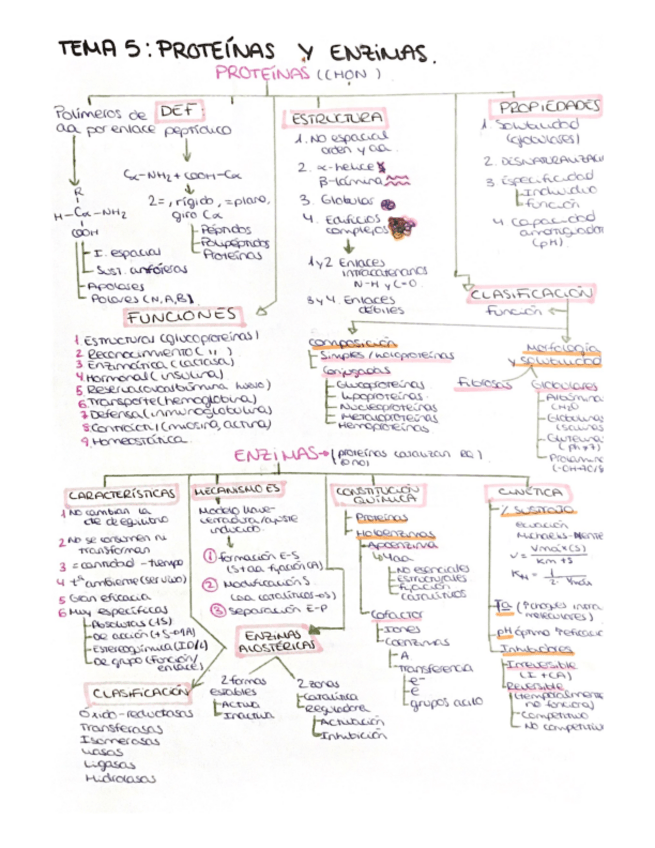 TEMA 5: PROTEÍNAS Y ENZIMAS.
PROTEÍNAS (CHON)
Polímeros de DEF
aa por enlace peptídico
R
H-Cα-NH2
COOH
I. espacial
Sust. anfóteras
Apolares
Polares (N,A,B)
Cα-NH2 + COOH-Cα
2=, rígido, =plano,
giro Cα
Péptidos
Polipéptidos
Proteínas
ESTRUCTURA
1. No espacial
orden y aa.
2. α-hélice
β-lámina
3. Globular
4. Edificios
complejos
1 y 2 Enlaces
intracatenarios
N-H y C=O
3 y 4. Enlaces
débiles
PROPIEDADES
1. Solubilidad
(globulares)
2. DESNATURALIZACI
3 Especificidad
Individuo
Función
4 Capacidad
amortiguador
(pH).
FUNCIONES
1 Estructural (glucoproteínas)
2 Reconocimiento ( " )
3 Enzimática (lactasa)
4 Hormonal (insulina)
5 Reserva (ovoalbúmina huevo)
6 Transporte (hemoglobina)
7 Defensa (inmunoglobulinas
8 Contráctil (miosina, actina)
9 Homeostática
CLASIFICACIÓN
Función
Composición
Simples / holoproteínas
Conjugadas
Glucoproteínas
Lipoproteínas
Nucleoproteínas
Metaloproteínas
Hemoproteínas
Morfología
y solubilidad
Fibrosas
Globulares
Albúmina
(H2O
Globulinas
(Salinas
Glutelina
(pH≠7)
Prolamina
ENZIMAS → (proteínas catalizan RQ)
CARACTERÍSTICAS
1 No cambian la
cte de equilibrio
2 No se consumen ni
transforman
3 = cantidad - tiempo
4 tª ambiente (ser vivo)
5 Gran eficacia
6 Muy específicas
Absolutas (1S)
De acción (+S→1A)
Estereoquímica (D/L)
De grupo (función/
enlace)
CLASIFICACIÓN
Óxido-reductasas
Transferasas
Isomerasas
Liasas
Ligasas
Hidrolasas
MECANISMO ES
Modelo llave-
cerradura/ajuste
inducido.
1 formación E-S
(S+aa fijación CA)
2 Modificación S
(aa catalíticos-S)
3 Separación E-P
ENZIMAS
ALOSTÉRICAS
2 formas
estables
Activa
Inactiva
2 zonas
Catalítica
Reguladora
Activación
Inhibición
CONSTITUCIÓN
QUÍMICA
Proteínas
Holoenzimas
Apoenzima
4 aa
No esenciales
Estructurales
Fijación
Catalíticos
Cofactor
Iones
Coenzimas
A
Transferencia
e-
grupos acilo
CINÉTICA
Ecuación
Michaelis-Mente
Tª
pH óptimo
Inhibidores
Irreversible
(I+CA)
Reversible
(temporalmente
no funciona)
Competitivo
No competitivo